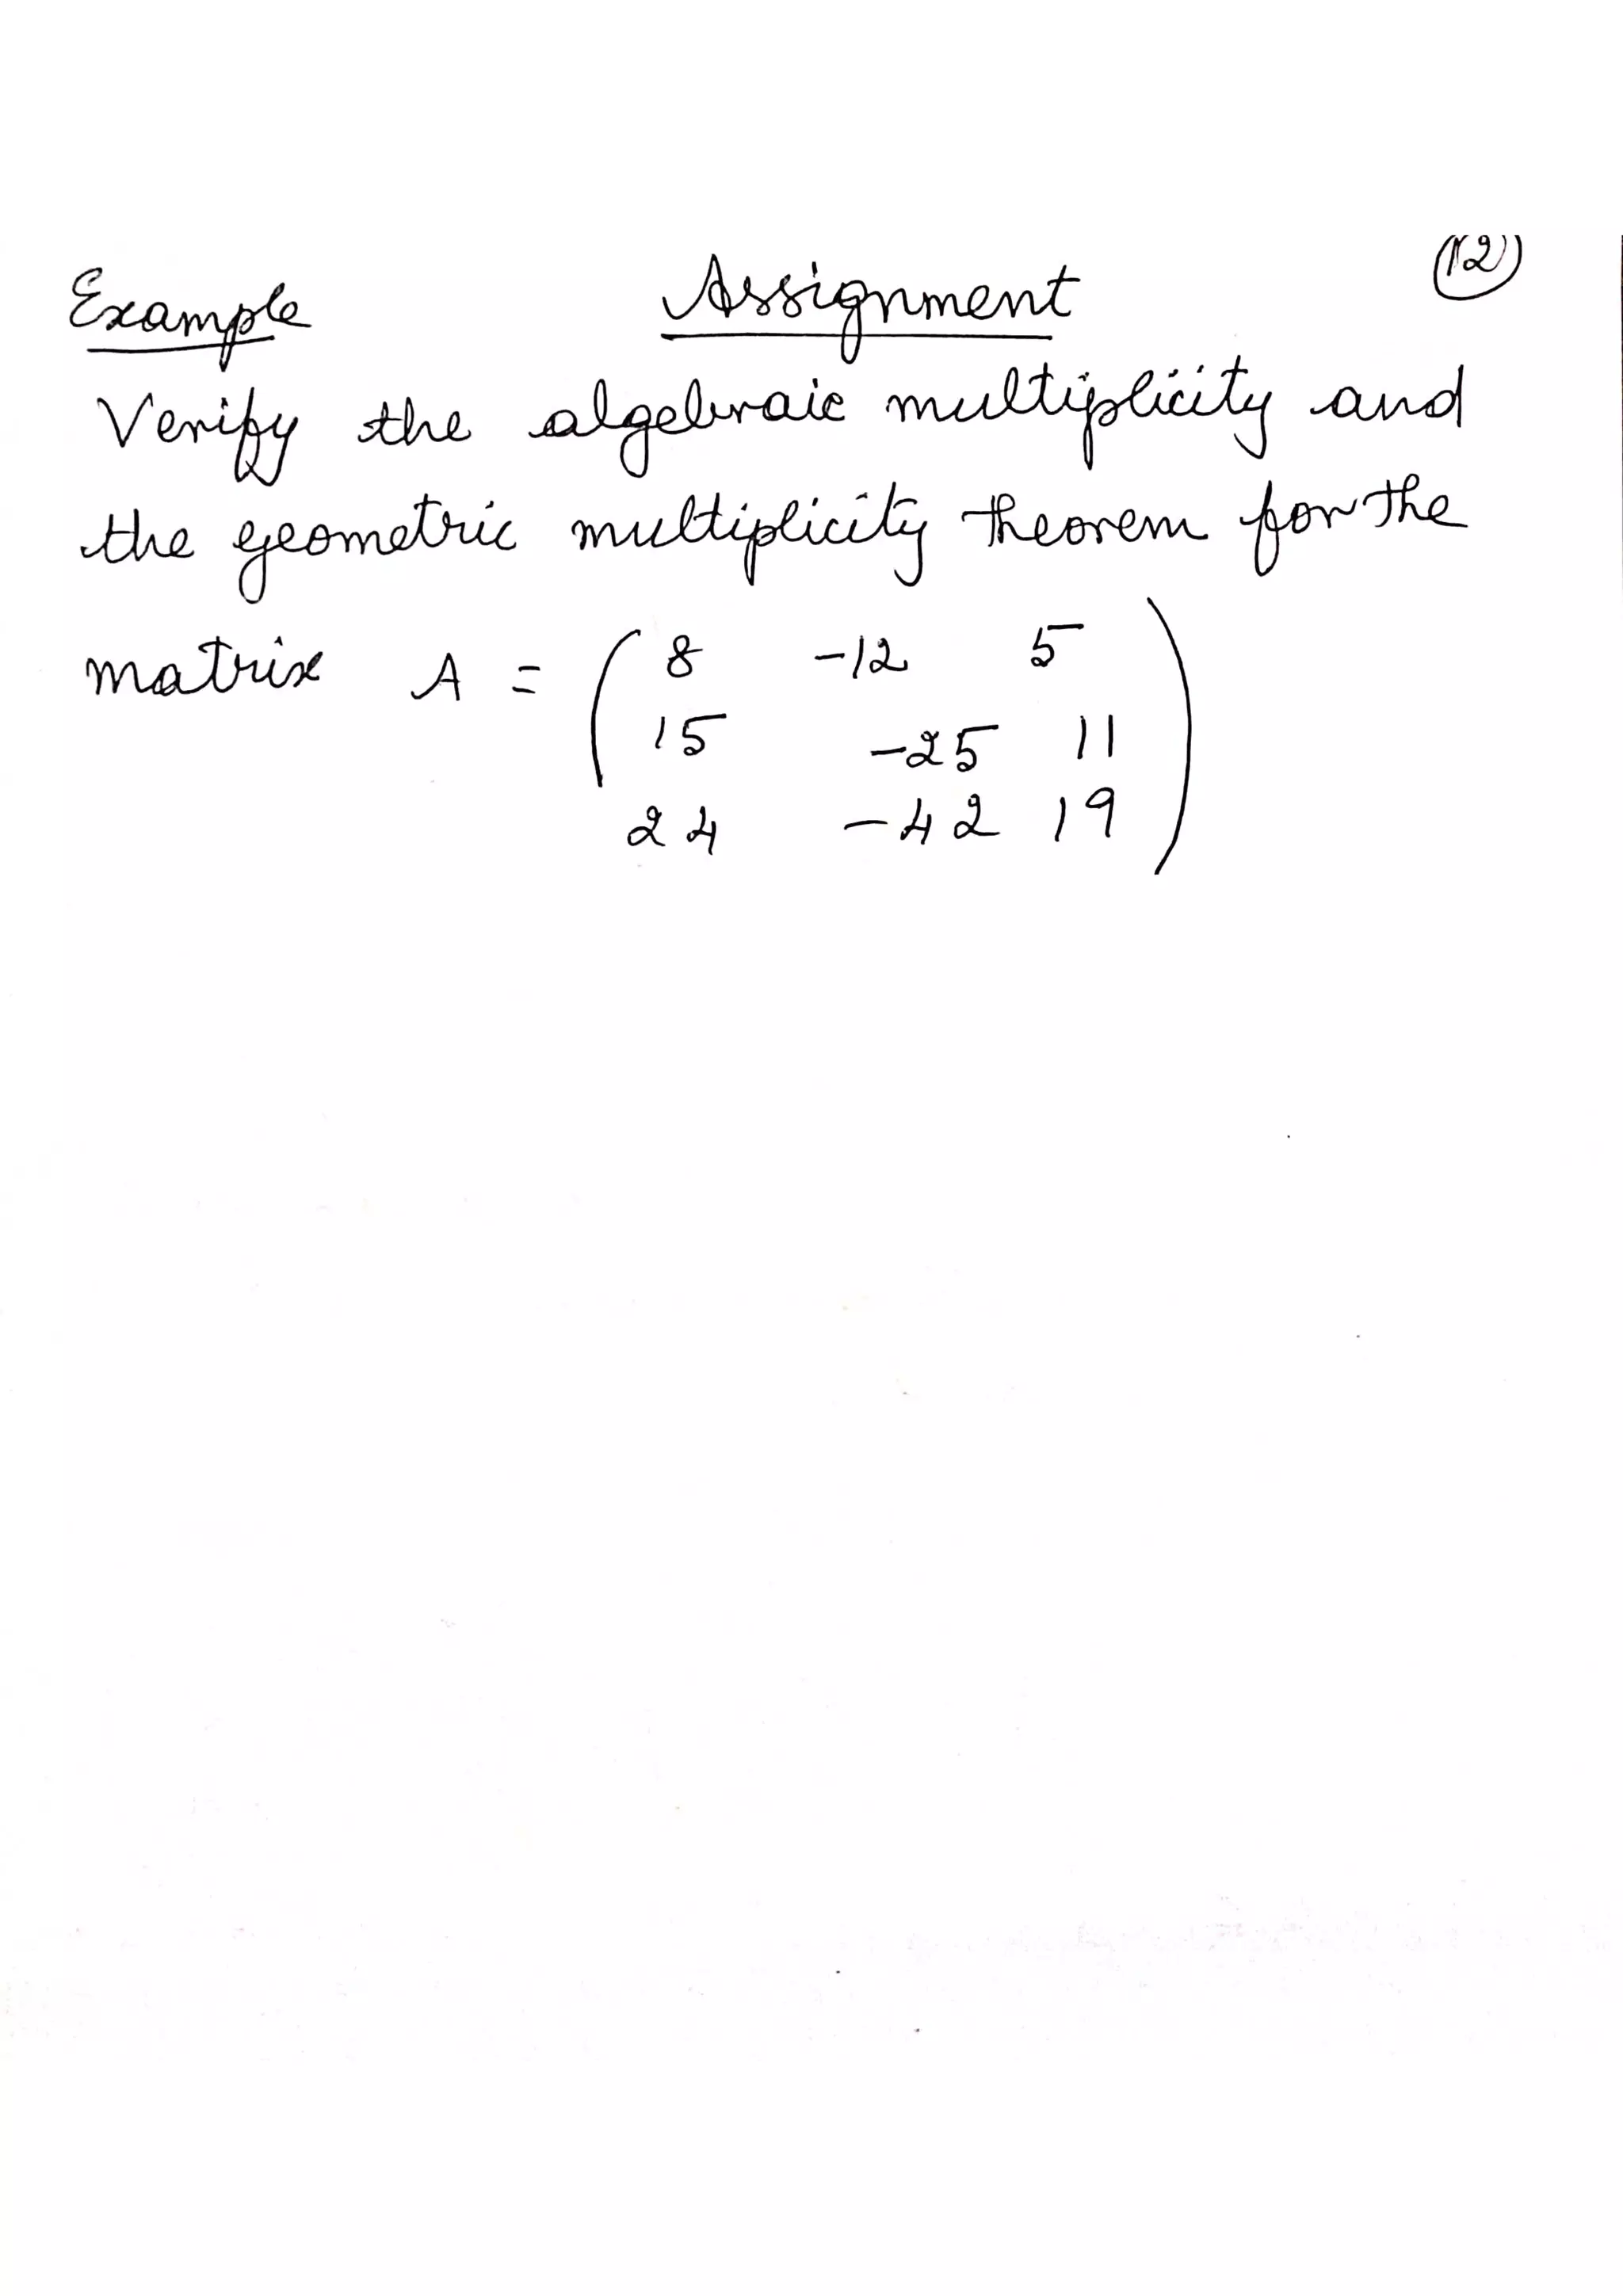 Example Assignment (12)
Verify the algebraic multiplicity and
the geometric multiplicity theorem for the
matrix A = ( 8 -12 5 )
15 -25 11
24 -42 19